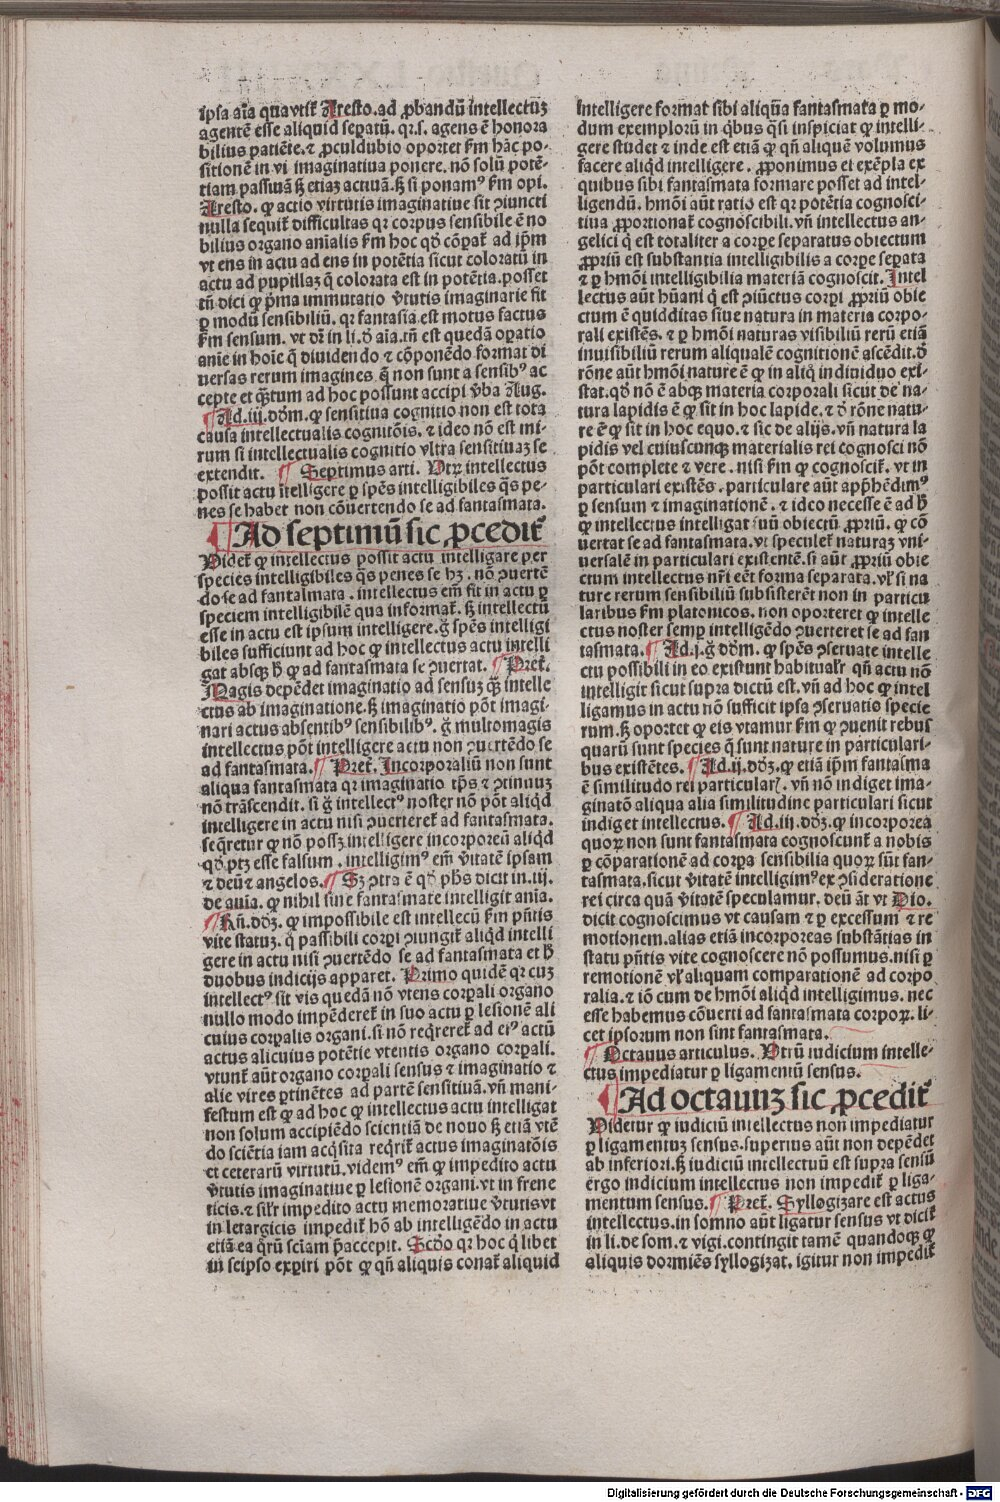 ipſa aīa qua vtiť Areſto.ad ꝓbandū intellectuȝ
agentē eſſe aliquid ſeꝑatū. qꝛ.ſ. agens ē honora
bilius patiēte.⁊ ꝓculdubio oportet ſm hāc po⸗
ſitionē in vi imaginatiua ponere. nō ſolū potē⸗
tiam paſſiuā ſȝ etiaȝ actuā.ſȝ ſi ponamꝰ ſm opi.
Areſto. ꝙ actio virtutis imaginatiue ſit ꝯiuncti
nulla ſequiť difficultas qꝛ corpus ſenſibile ē no
bilius organo aīalis ſm hoc qď cōꝑať ad ip̄m
vt ens in actu ad ens in potētia ſicut coloratū in
actu ad pupillaȝ q̄ colorata eſt in potētia.poſſet
tn̄ dici ꝙ p̄ma immutatio v̄tutis imaginarie fit
ꝑ modū ſenſibiliū. qꝛ fantaſia eſt motus factus
ſm ſenſum. vt dr̄ in li.ď aīa.tn̄ eſt quedā oꝑatio
anīe in hoīe q̄ diuidendo ⁊ cōponēdo format di
uerſas rerum imagines q̄ non ſunt a ſenſibꝰ ac
cepte et q̄ꝫtum ad hoc poſſunt accipi v̄ba Aug.
¶ Ad.iij.dōm.ꝙ ſenſitiua cognitio non eſt tota
cauſa intellectualis cognitōis. ⁊ ideo nō eſt mi⸗
rum ſi intellectualis cognitio vltra ſenſitiuaȝ ſe
extendit. ¶ Septimus arti. Vtrꝝ intellectus
poſſit actu ītelligere ꝑ ſpēs intelligibiles q̄s pe⸗
nes ſe habet non cōuertendo ſe ad fantaſmata.
¶ Ad ſeptimū ſic ꝓcediť
Videť ꝙ intellectus poſſit actu intelligare per
ſpecies intelligibiles q̄s penes ſe hȝ. nō ꝯuertē
do ſe ad fantaſmata. intellectus em̄ fit in actu ꝑ
ſpeciem intelligibilē qua informať. ſȝ intellectū
eſſe in actu eſt ipſum intelligere.ḡ ſpēs intelligi
biles ſufficiunt ad hoc ꝙ intellectus actu intelli
gat abſqȝ ħ ꝙ ad fantaſmata ſe ꝯuertat. ¶ Preť.
Magis depēdet imaginatio ad ſenſuȝ q̄ꝫ intelle
ctus ab imaginatione.ſȝ imaginatio pōt imagi⸗
nari actus abſentibꝰ ſenſibilibꝰ. ḡ multomagis
intellectus pōt intelligere actu non ꝯuertēdo ſe
ad fantaſmata. ¶ Preť. Incorporaliū non ſunt
aliqua fantaſmata qꝛ imaginatio tp̄s ⁊ ꝯtinuuȝ
nō trāſcendit. ſi ḡ intellectꝰ noſter nō pōt aliqď
intelligere in actu niſi ꝯuertereť ad fantaſmata.
ſeq̄retur ꝙ nō poſſȝ intelligere incorporeū aliqď
qď ptȝ eſſe falſum. intelligimꝰ em̄ v̄tatē ipſam
⁊ deū ⁊ angelos. ¶ Sȝ ꝯtra ē qď ph̄s dicit in.iij.
de aīa. ꝙ nihil ſine fantaſmate intelligit anīa.
¶ Rn̄.dōȝ. ꝙ impoſſibile eſt intellecū ſm pn̄tis
vite ſtatuȝ. q̄ paſſibili corꝑi ꝯiungiť aliqď intelli
gere in actu niſi ꝯuertēdo ſe ad fantaſmata et ħ
duobus indicijs apparet. Primo quidē qꝛ cuȝ
intellectꝰ ſit vis quedā nō vtens corꝑali organo
nullo modo impēdereť in ſuo actu ꝑ leſionē ali
cuius corꝑalis organi.ſi nō reqr̄ereť ad eiꝰ actū
actus alicuius potētie vtentis organo corꝑali.
vtunť aūt organo corꝑali ſenſus ⁊ imaginatio ⁊
alie vires ꝑtinētes ad partē ſenſitiuā.vn̄ mani⸗
feſtum eſt ꝙ ad hoc ꝙ intellectus actu intelligat
non ſolum accipiēdo ſcientiā de nouo ſȝ etiā vtē
do ſciētia iam acq̄ſita reqr̄iť actus imaginatōis
et ceterarū virtutū.videmꝰ em̄ ꝙ impedito actu
v̄tutis imaginatiue ꝑ leſionē organi.vt in frene
ticis.⁊ ſil̄r impedito actu memoratiue v̄tutis vt
in letargicis impediť hō ab intelligēdo in actu
etiā ea qr̄ū ſciam p̄accepit. Scďo qꝛ hoc q̄libet
in ſeipſo exꝑiri pōt ꝙ qn̄ aliquis conať aliquid
intelligere format ſibi aliqūa fantaſmata ꝑ mo⸗
dum exemploꝛū in q̄bus q̄ſi inſpiciat ꝙ intelli⸗
gere ſtudet ⁊ inde eſt etiā ꝙ qn̄ aliquē volumus
facere aliqď intelligere. ꝓponimus ei exēpla ex
quibus ſibi fantaſmata formare poſſet ad intel⸗
ligendū. hmōi aūt ratō eſt qꝛ potētia cognoſci⸗
tiua ꝓportionať cognoſcibili.vn̄ intellectus an⸗
gelici q̄ eſt totaliter a corꝑe ſeparatus obiectum
ꝓpriū eſt ſubſtantia intelligibilis a corꝑe ſeꝑata
⁊ ꝑ hmōi intelligibilia materiā cognoſcit. Intel
lectus aūt hūani q̄ eſt ꝯiūctus corꝑi ꝓpriū obie
ctum ē quidditas ſiue natura in materia corpo⸗
rali exiſtēs. ⁊ ꝑ hmōi naturas viſibiliū rerū etiā
inuiſibiliū rerum aliqualē cognitionē aſcēdit.ď
rōne aūt hmōi nature ē ꝙ in aliq̄ indiuiduo exi⸗
ſtat.qď nō ē abſqȝ materia corporali ſicut de na⸗
tura lapidis ē ꝙ ſit in hoc lapide.⁊ ď rōne natu⸗
re ē ꝙ ſit in hoc equo.⁊ ſic de alijs.vn̄ natura la
pidis vel cuiuſcunqȝ materialis rei cognoſci nō
pōt complete ⁊ vere. niſi ſm ꝙ cognoſciť. vt in
particulari exiſtēs. particulare aūt app̄hēdimꝰ
ꝑ ſenſum ⁊ imaginationē. ⁊ ideo neceſſe ē ad ħ
ꝙ intellectus intelligat ſuū obiectū ꝓpriū. ꝙ cō
uertat ſe ad fantaſmata.vt ſpeculeť naturaȝ vni⸗
uerſalē in particulari exiſtentē.ſi aūt ꝓpriū obie
ctum intellectus nr̄i eēt forma ſeparata.vl̓ ſi na
ture rerum ſenſibiliū ſubſiſterēt non in particu
laribus ſm platonicos. non oporteret ꝙ intelle
ctus noſter ſemꝑ intelligēdo ꝯuerteret ſe ad fan
taſmata. ¶ Ad.j.ḡ dōm. ꝙ ſpēs ꝯſeruate intelle
ctu poſſibili in eo exiſtunt habitual̓r qn̄ actu nō
intelligit ſicut ſupra dictū eſt.vn̄ ad hoc ꝙ intel
ligamus in actu nō ſufficit ipſa ꝯſeruatis ſpecie
rum.ſȝ oportet ꝙ eis vtamur ſm ꝙ ꝯuenit rebus
quarū ſunt ſpecies q̄ ſunt nature in particulari⸗
bus exiſtētes. ¶ Ad.ij.dōȝ.ꝙ etiā ip̄m fantaſma
ē ſimilitudo rei particularꝭ. vn̄ nō indiget ima⸗
ginatō aliqua alia ſimilitudine particulari ſicut
indiget intellectus. ¶ Ad.iij.dōȝ.ꝙ incorporea
quoꝝ non ſunt fantaſmata cognoſcunť a nobis
ꝑ cōparationē ad corꝑa ſenſibilia quoꝝ ſūt fan⸗
taſmata.ſicut v̄itatē intelligimꝰ ex ꝯſideratione
rei circa quā v̄itatē ſpeculamur. deū āt vt Dio.
dicit cognoſcimus vt cauſam ⁊ ꝑ exceſſum ⁊ re
motionem.alias etiā incorporeas ſubſtātias in
ſtatu pn̄tis vite cognoſcere nō poſſumus.niſi ꝑ
remotionē vl̓ aliquam comparationē ad corpo
ralia.⁊ iō cum de hmōi aliqď intelligimus. nec
eſſe habemus cōuerti ad fantaſmata corpoꝝ. li⸗
cet ipſorum non ſint fantaſmata.
¶ Octauus articulus. Vtrū iudicium intelle⸗
ctus impediatur ꝑ ligamentū ſenſus.
¶ Ad octauuȝ ſic ꝓcediť
Videtur ꝙ iudiciū intellectus non impediatur
ꝑ ligamentuȝ ſenſus.ſuperius aūt non depēdet
ab inferiori.ſȝ iudiciū intellectuū eſt ſupra ſenſū
ergo indicium intellectus non impediť ꝑ liga⸗
mentum ſenſus. ¶ Preť. Syllogizare eſt actus
intellectus.in ſomno aūt ligatur ſenſus vt diciť
in li.de ſom.⁊ vigi.contingit tamē quandoqȝ ꝙ
aliquis dormiēs ſyllogizat. igitur non impediť
Digitalisierung gefördert durch die Deutsche Forschungsgemeinschaft - DFG